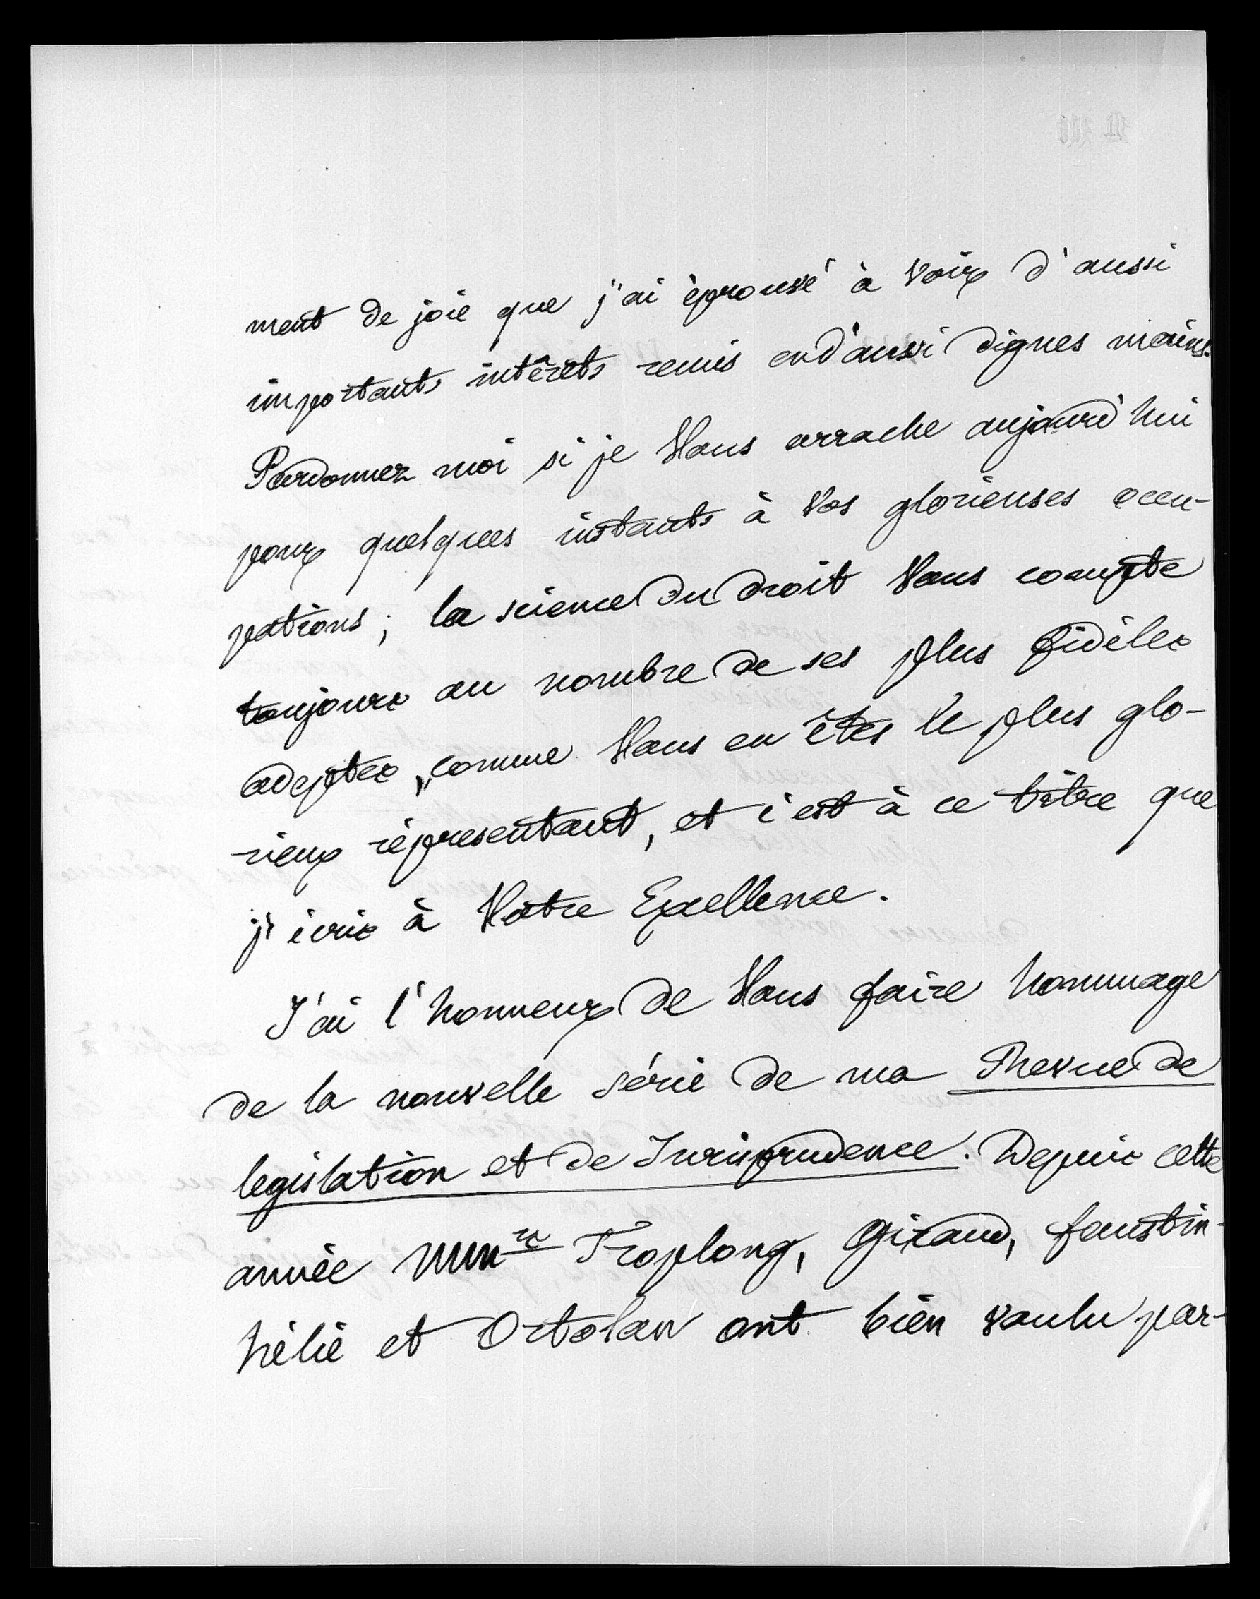 ment de joie que j'ai éprouvé à voir d'aussi
importants intérêts remis en d'aussi dignes mains.
Pardonnez moi si je Vous arrache aujourd'hui
pour quelques instants à Vos glorieuses occu-
pations; la science du droit Vous compte
toujours au nombre de ses plus fidèles
adeptes, comme Vous en êtes le plus glo-
rieux réprésentant, et c'est à ce titre que
j'écris à Votre Excellence.
J'ai l'honneur de Vous faire hommage
de la nouvelle série de ma Revue de
legislation et de Jurisprudence. Depuis cette
année MMrs Troplong, Giraud, faustin-
hélie et Ortolan ont bien voulu par-